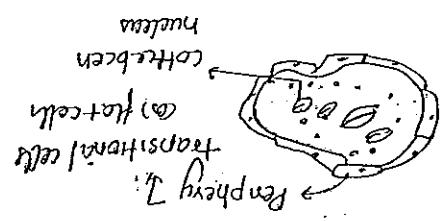 Periphery I:
transitional cells
(or) flat cells
coffee-been
nucleus